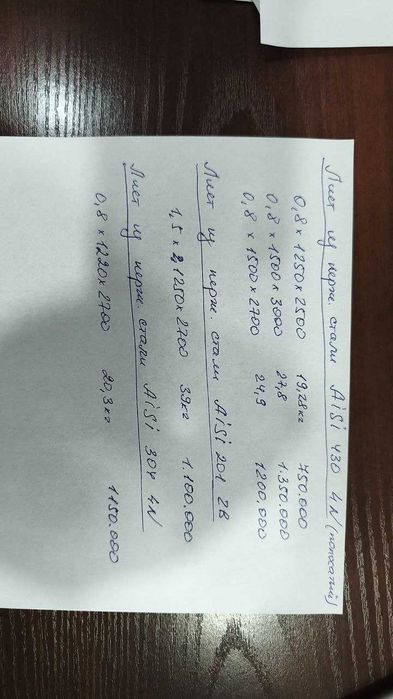 Лист из нерж. стали AiSi 430 4N (полосатый)
0,8 x 1250 x 2500 19,28кг 750.000
0,8 x 1500 x 3000 27,8 1.350.000
0,8 x 1500 x 2700 24,9 1200.000
Лист из нерж. стали AiSi 201 2B
1,5 x 1250 x 2700 39кг 1.100.000
Лист из нерж. стали AiSi 304 4N
0,8 x 1220 x 2700 20,3кг 1150.000